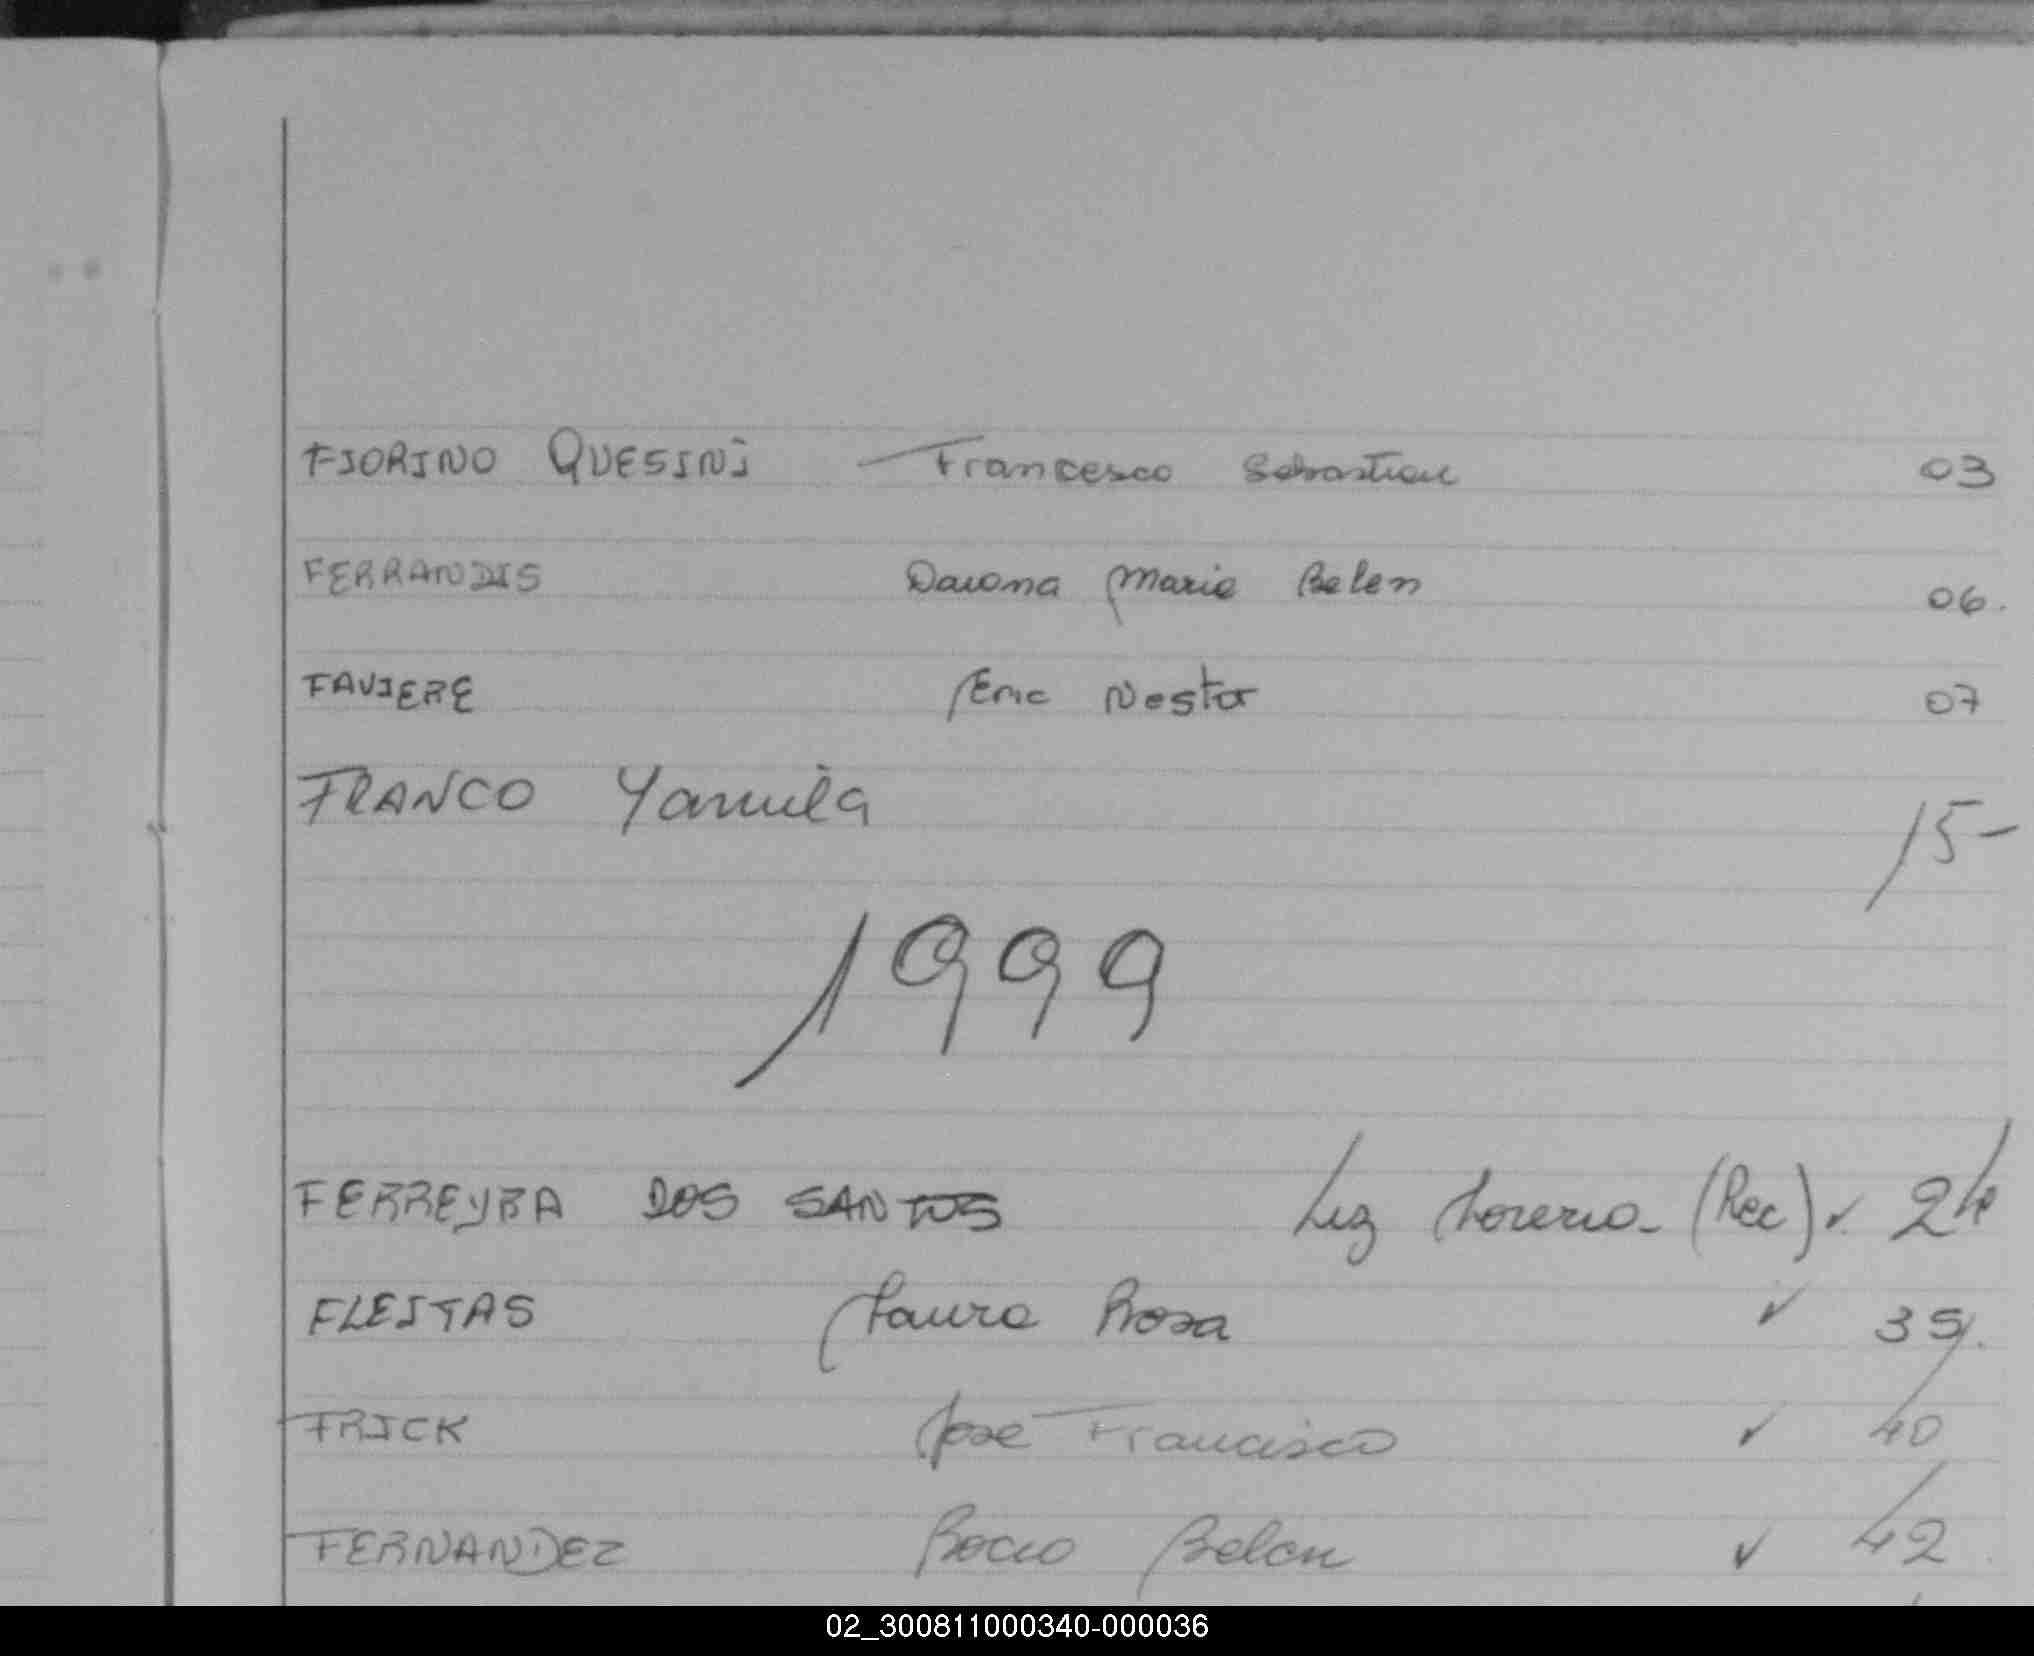 FIORINO QUESINI Francesco Sebastian 03
FERRANDIS Daiana Maria Belen 06.
FAVIERE Eric Nestor 07
FRANCO Yamila 15-
1999
FERREYRA DOS SANTOS Luz Lorena (Rec) ✓ 24
FLEITAS Laura Rosa ✓ 35.
FRICK Jose Francisco ✓ 40
FERNANDEZ Rocio Belen ✓ 42
02_300811000340-000036